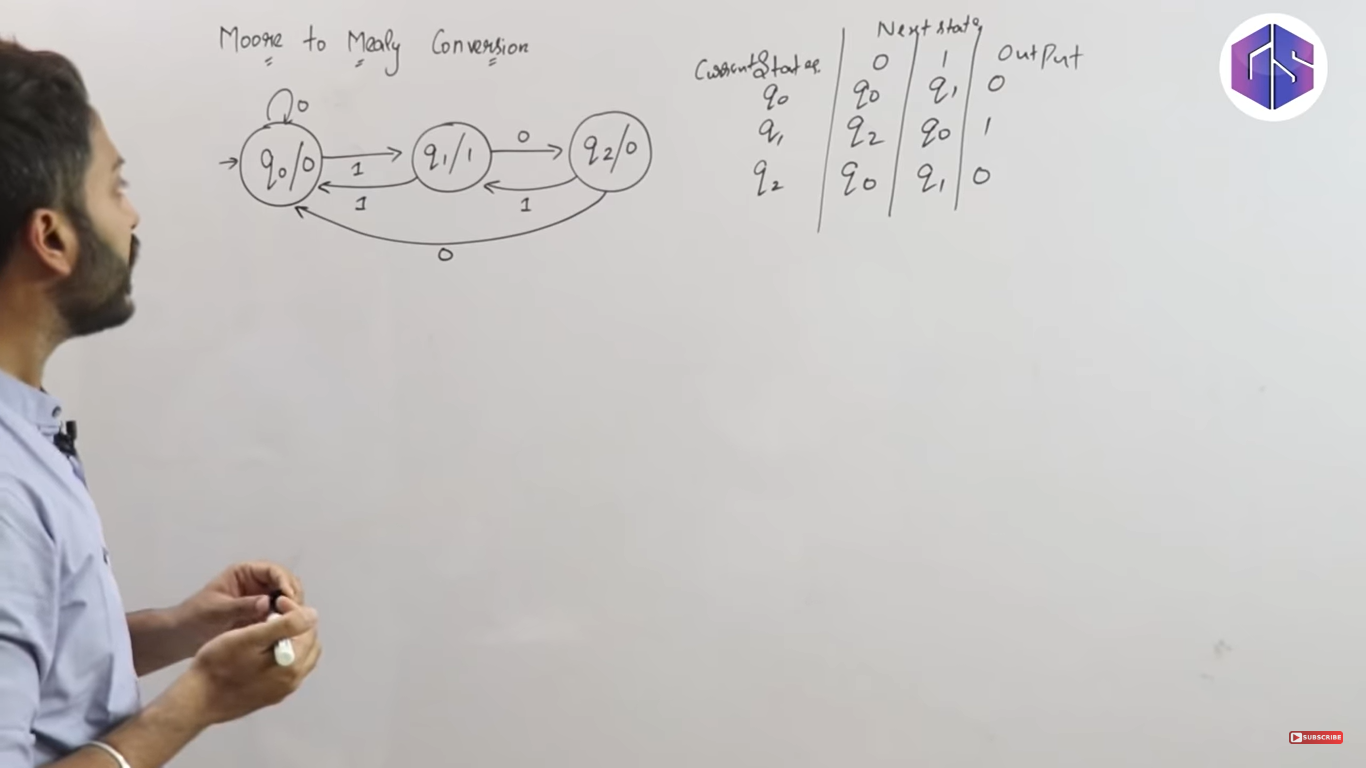 Moore to Mealy Conversion
0
q0/0
1
q1/1
0
q2/0
1
1
0
Next state
Current States
0
1
Output
q0 q0 q1 0
q1 q2 q0 1
q2 q0 q1 0
SUBSCRIBE